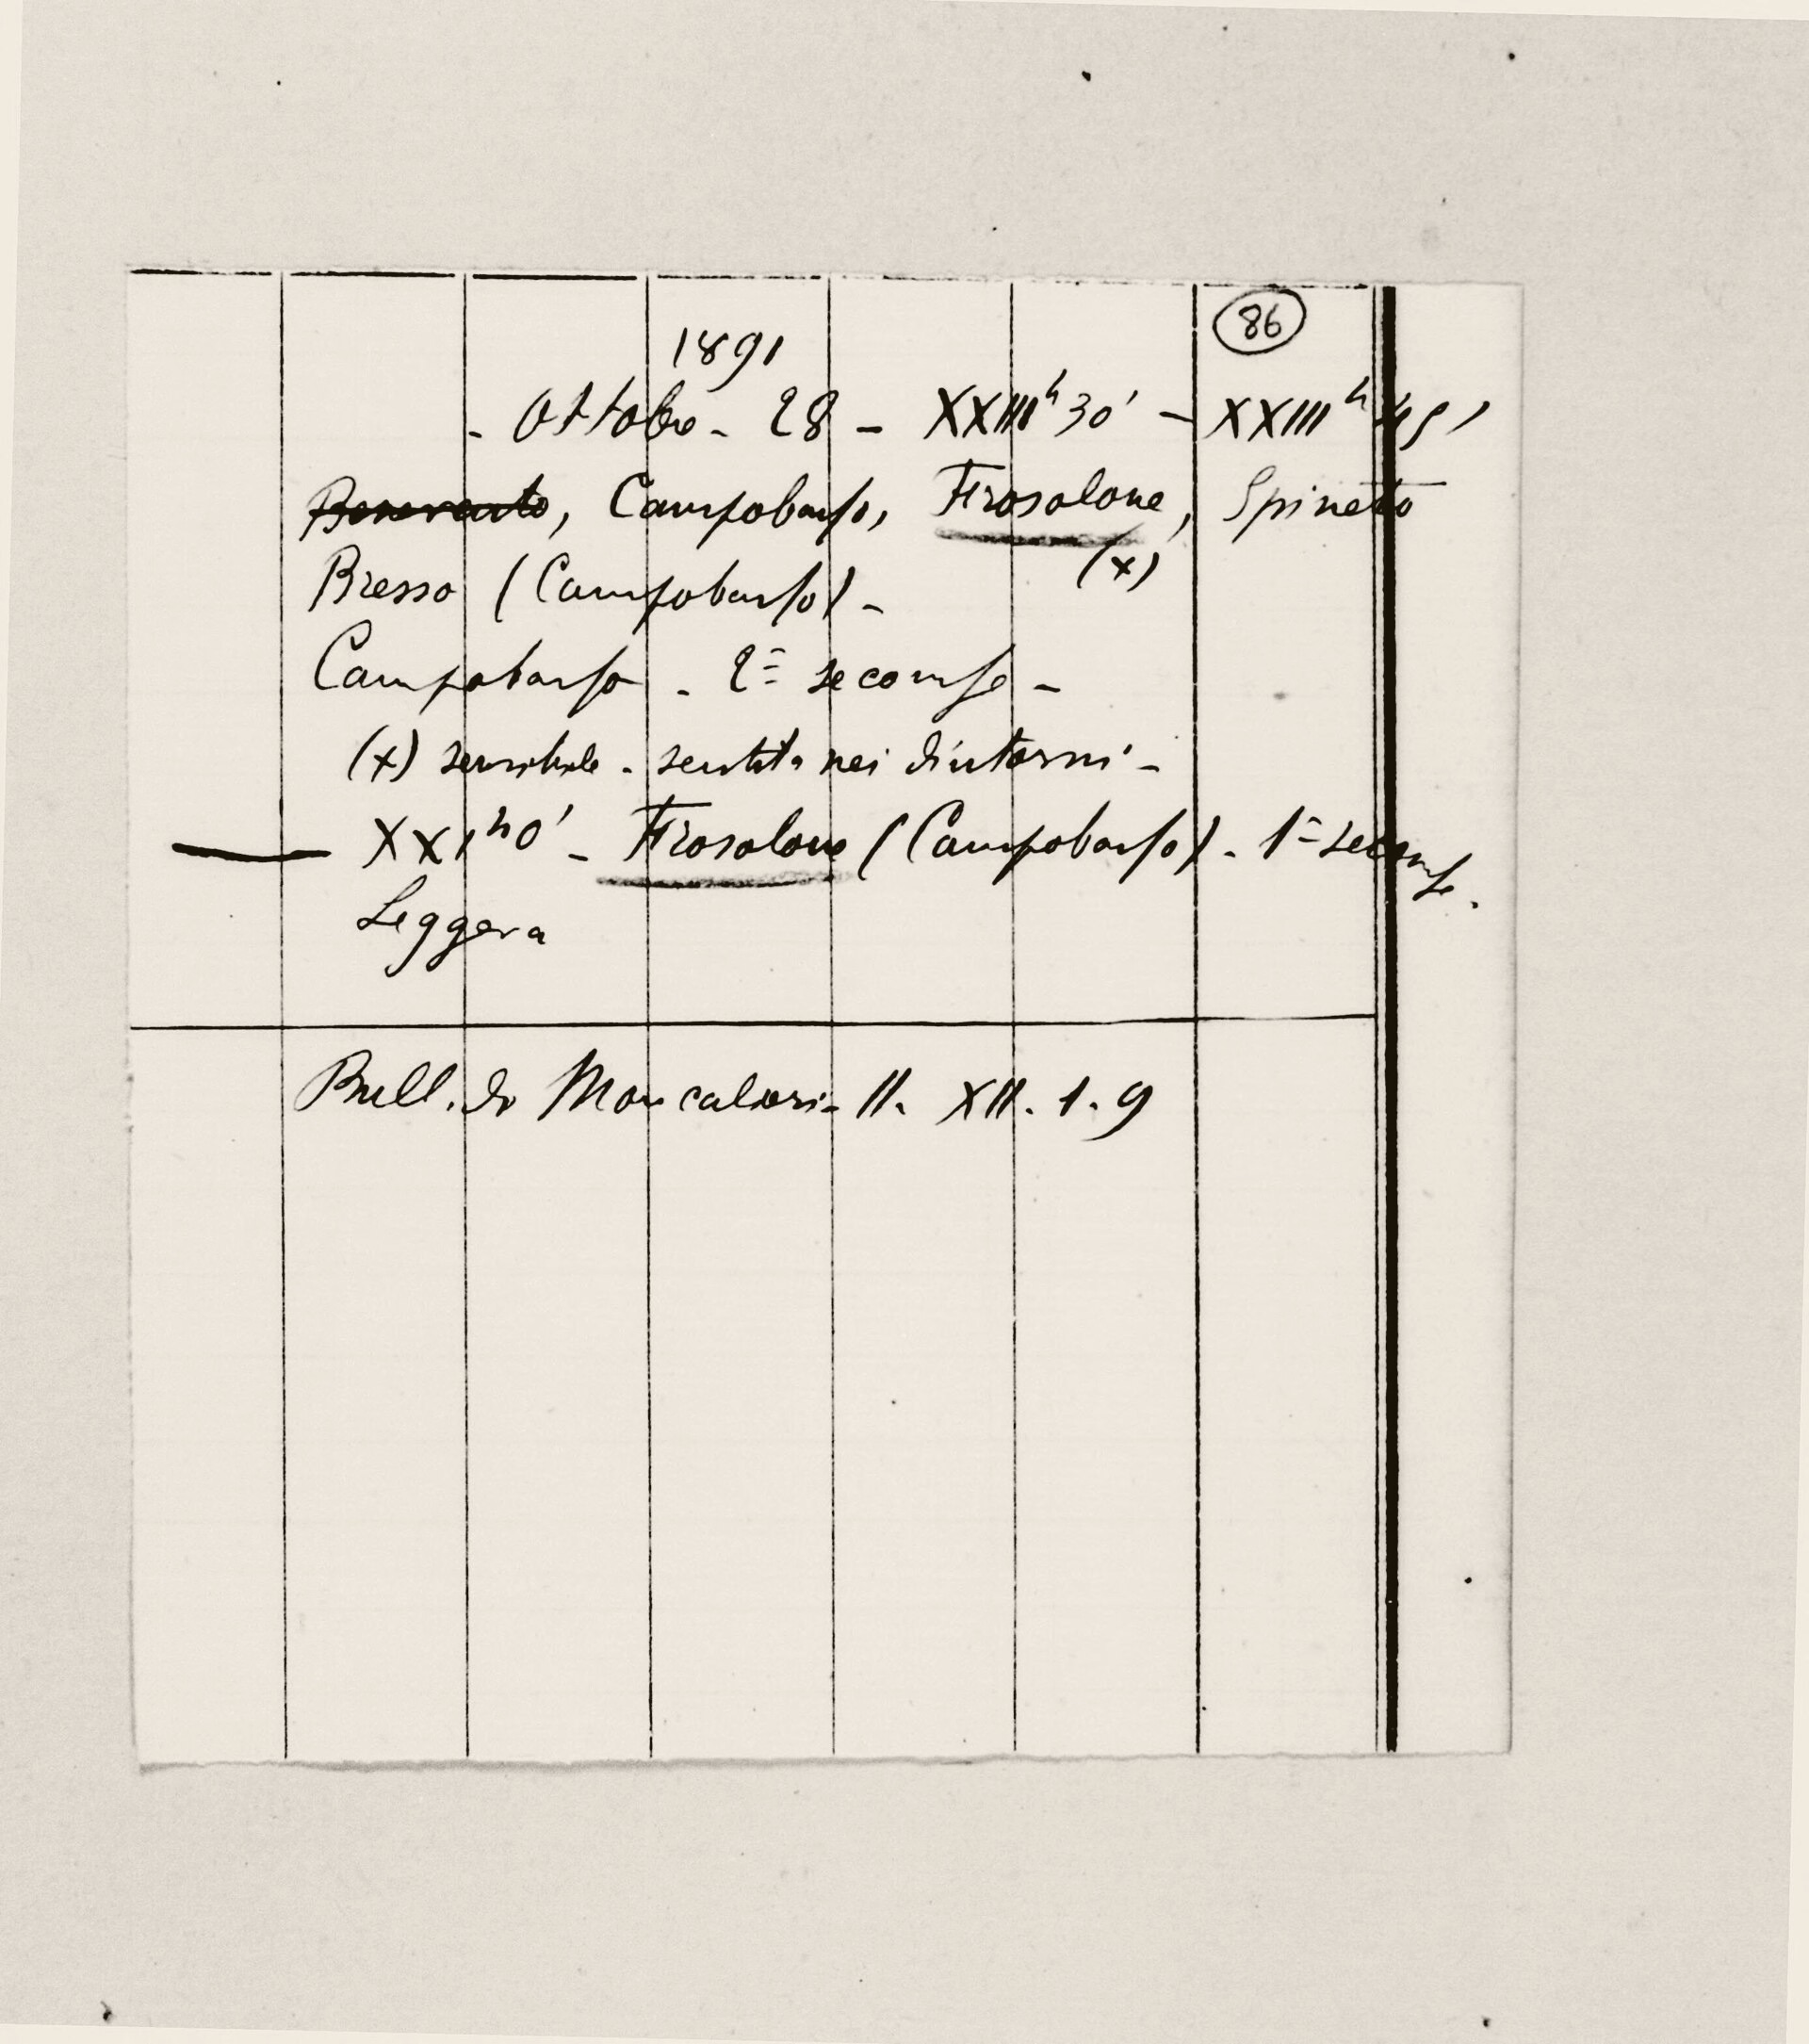 86
1891
- Ottobre - 28 - XXIII h 30' - XXIII h 45'
Benevento, Campobasso, Frosolone, Spineto
Bresso (Campobasso) - (x)
Campobasso - 2ª scomse -
(x) sensibile - sentita nei dintorni -
— XXI h 0' - Frosolone (Campobasso) - 1ª
Leggera
Bull. di Moncalieri - 11. XII. 1. 9